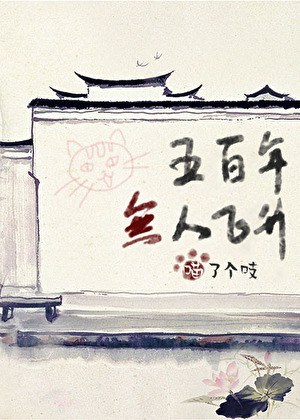 五百年
無人飞升
喵了个吱